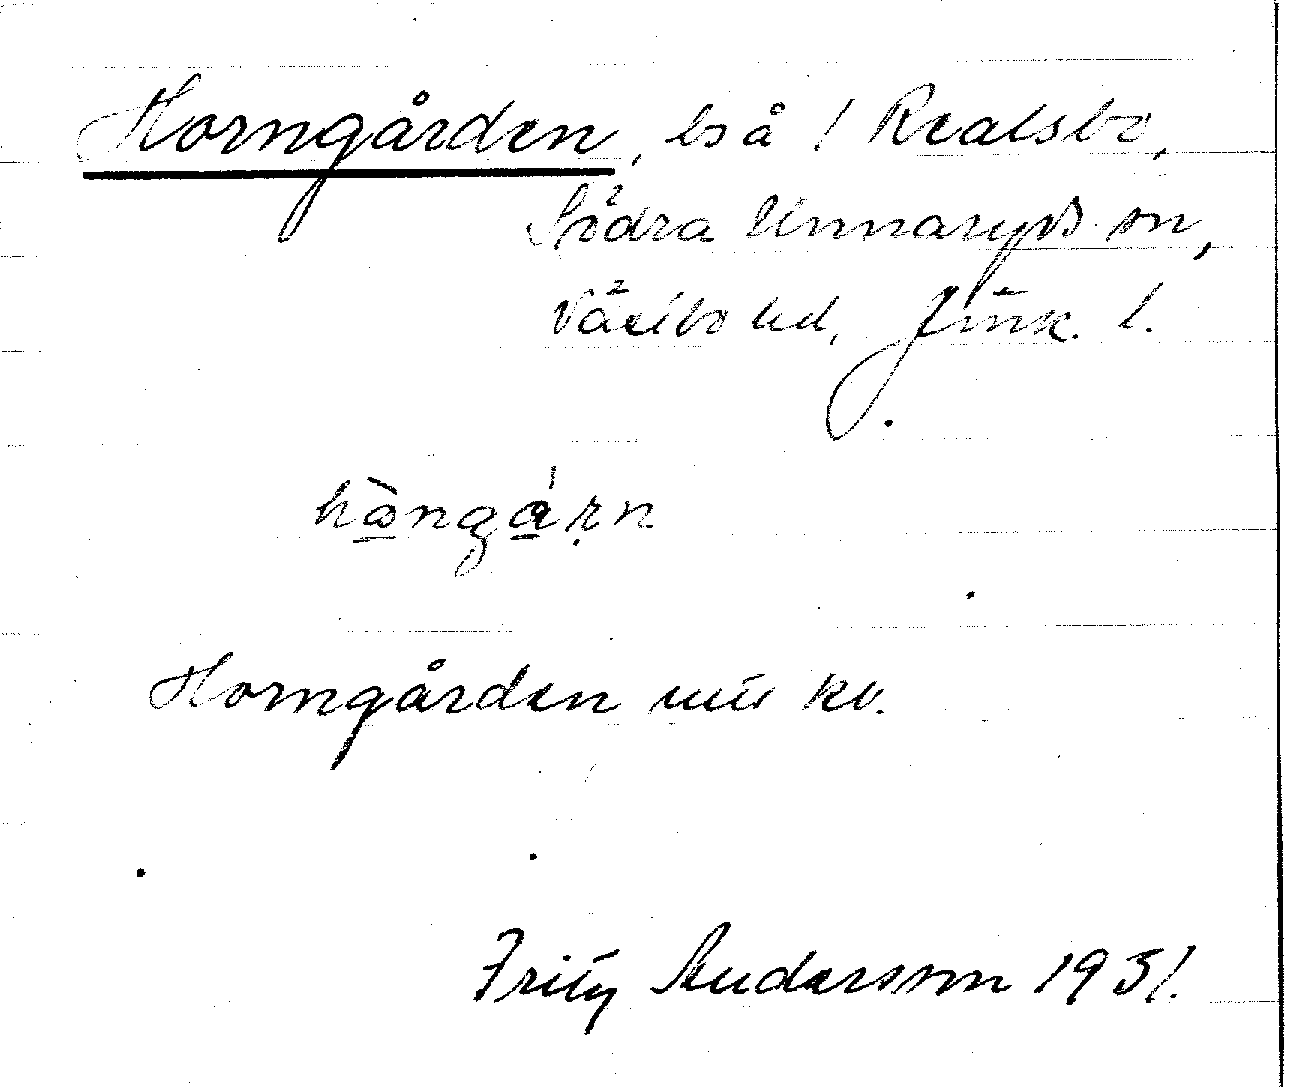 Horngården, bså / Realsbo,
Södra Unnaryds sn,
Västbo hd, Jönk. l.
hàngárn
Horngården mu kv.
Fritz Andersson 1931.